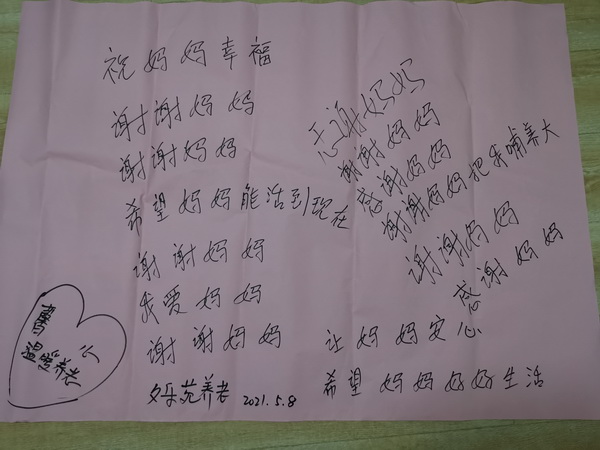 祝妈妈幸福
谢谢妈妈
谢谢妈妈
希望妈妈能活到现在
谢谢妈妈
我爱妈妈
谢谢妈妈
乐苑养老 2021.5.8
温爱养老
感谢妈妈
谢谢妈妈
感谢妈妈
谢谢妈妈把我哺养大
谢谢妈妈
感谢妈妈
让妈妈安心
希望妈妈好好生活